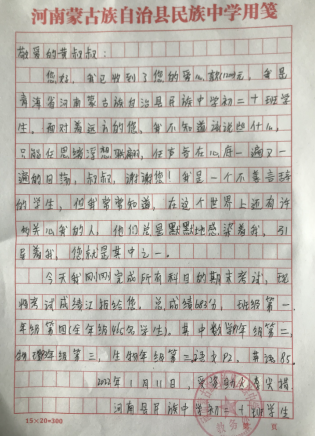 河南蒙古族自治县民族中学用笺
敬爱的黄叔叔：
您好，我已收到了您的 1200元，我是
青海省河南蒙古族自治县民族中学初二十班学
生，面对着远方的您，我不知道该说些什么，
只能任思绪浮想联翩，任声音在心底一遍又一
遍的回荡，叔叔，谢谢您！我是一个不善言辞
的学生，但我常常知道，在这个世界上还有许
多关心我的人，他们总是默默地感染着我，引
导着我，您就是其中之一。
今天我刚刚完成所有科目的期末考试，现
将考试成绩汇报给您。总成绩683分，班级第一，
年级第四（全年级 名学生）。其中数学年级第二，
物理年级第三，生物年级第二，语文 ，英语85。
2022年1月11日，受资助人
河南县民族中学初二十班学生
15×20=300
教务
页